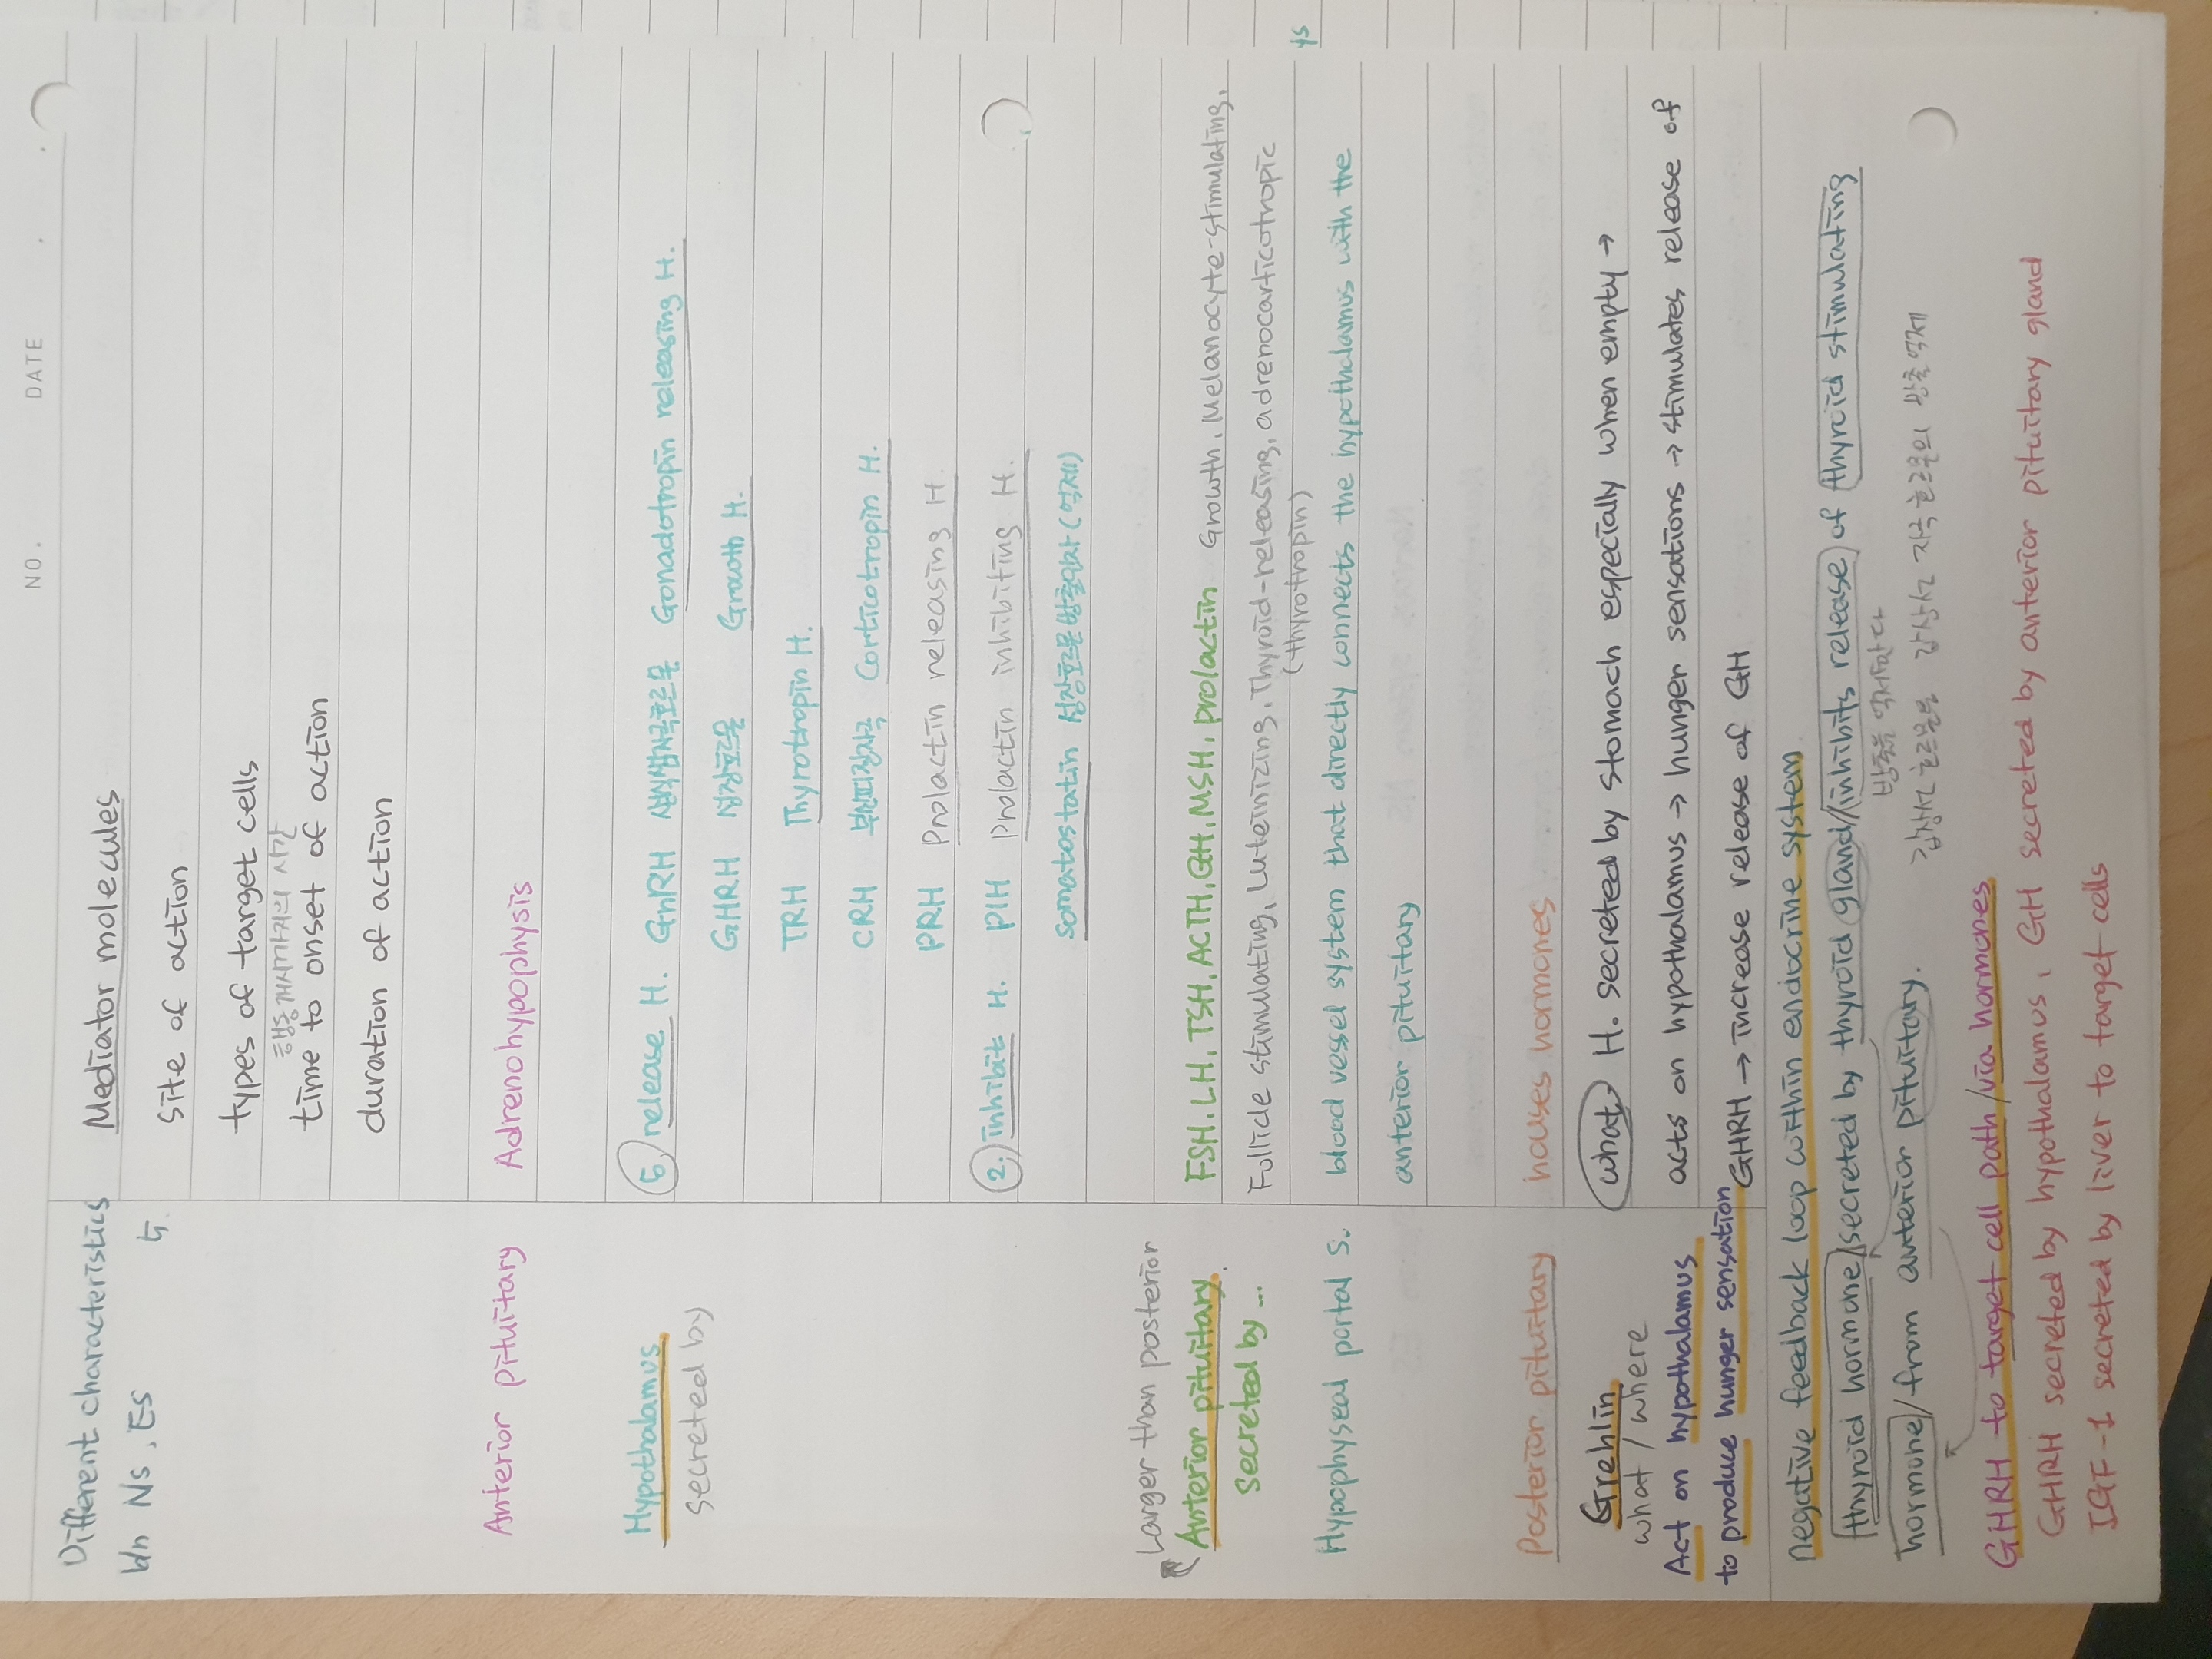 NO. DATE . .
Different characteristics
b/n Ns, Es 5
Mediator molecules
site of action
types of target cells
행동 개시까지의 시간
time to onset of action
duration of action
Anterior pituitary Adrenohypophysis
Hypothalamus
secreted by
5 release H. GnRH 생식샘자극호르몬 Gonadotropin releasing H.
GHRH 성장호르몬 Growth H.
TRH Thyrotropin H.
CRH 부신피질자극 Corticotropin H.
PRH Prolactin releasing H.
2. inhibit H. PIH Prolactin inhibiting H.
somatostatin 성장호르몬방출억자 (억제)
Larger than posterior
Anterior pituitary.
secreted by ...
FSH, LH, TSH, ACTH, GH, MSH, prolactin Growth, Melanocyte-stimulating,
Follicle stimulating, Luteinizing, Thyroid-releasing, adrenocarticotropic
(thyrotropin)
Hypophyseal portal s. blood vessel system that directly connects the hypothalamus with the
anterior pituitary
ys
Posterior pituitary houses hormones
Grehlin
what / where
Act on hypothalamus
to produce hunger sensation
what H. secreted by stomach especially when empty →
acts on hypothalamus → hunger sensations → stimulates release of
GHRH → increase release of GH
negative feedback loop within endocrine system
thyroid hormone/secreted by thyroid gland/inhibits release of thyroid stimulating
방출을 억제한다
hormone/from anterior pituitary. 갑상선 호르몬은 갑상선 자극 호르몬의 방출 억제
GHRH to target cell path/via hormones
GHRH secreted by hypothalamus, GH secreted by anterior pituitary gland
IGF-1 secreted by liver to target cells